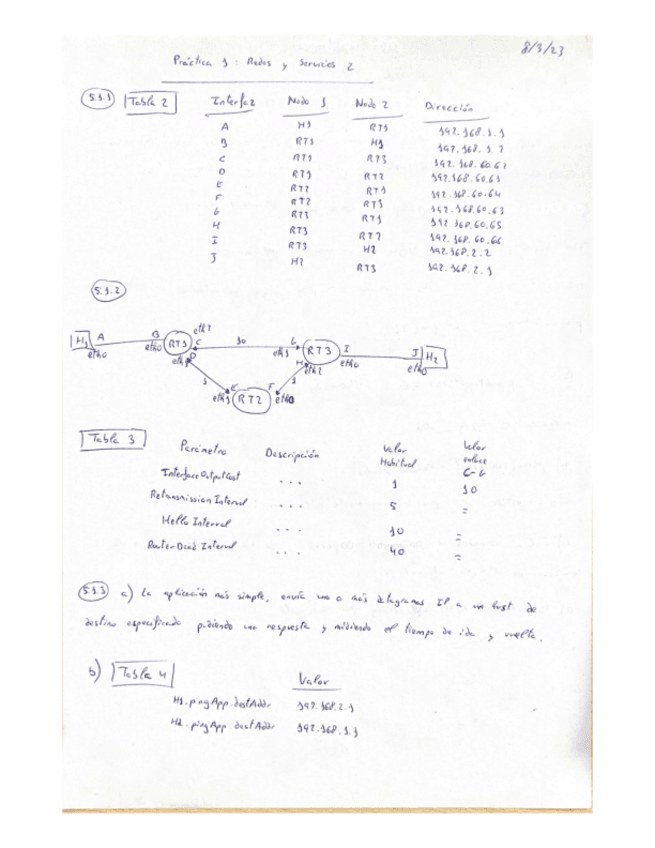 8/3/23
Práctica 1: Redes y Servicios 2
5.1.1 Tabla 2 Interfaz Nodo 1 Nodo 2 Dirección
A H1 RT1 192.168.1.1
B RT1 H1 192.168.1.2
C RT1 RT3 192.168.60.62
D RT1 RT2 192.168.60.61
E RT2 RT1 192.168.60.64
F RT2 RT3 192.168.60.63
G RT3 RT1 192.168.60.65
H RT3 RT2 192.168.60.66
I RT3 H2 192.168.2.2
J H2 RT3 192.168.2.1
5.1.2
H1 A eth0 B eth0 RT1 eth2 C D eth1 10 G eth1 RT3 I eth0 J eth0 H2
H eth2
1 E eth1 RT2 F eth0 1
Tabla 3
Parámetro Descripción Valor Habitual Valor enlace C-G
InterfaceOutputCost ... 1 10
Retransmission Interval ... 5 =
Hello Interval ... 10 =
RouterDead Interval ... 40 =
5.1.3 a) La aplicación más simple, envía uno o más datagramas IP a un host de
destino especificado pidiendo una respuesta y midiendo el tiempo de ida y vuelta.
b) Tabla 4 Valor
H1.pingApp.destAddr 192.168.2.1
H2.pingApp.destAddr 192.168.1.1